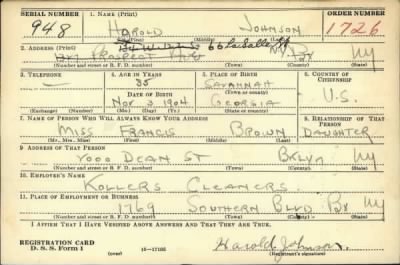 SERIAL NUMBER 1. NAME (Print) ORDER NUMBER
948 HAROLD JOHNSON 1726
(First) (Middle) (Last)
2. ADDRESS (Print) 66 LaSalle St
Prospect Ave NY Bx NY
(Number and street or R. F. D. number) (Town) (County) (State)
3. TELEPHONE 4. AGE IN YEARS 5. PLACE OF BIRTH 6. COUNTRY OF CITIZENSHIP
38 SAVANNAH
DATE OF BIRTH (Town or county)
Nov 3 1904 GEORGIA U.S.
(Exchange) (Number) (Mo.) (Day) (Yr.) (State or country)
7. NAME OF PERSON WHO WILL ALWAYS KNOW YOUR ADDRESS 8. RELATIONSHIP OF THAT PERSON
MISS FRANCIS BROWN DAUGHTER
(Mr., Mrs., Miss) (First) (Middle) (Last)
9 ADDRESS OF THAT PERSON
DEAN ST BKLYN NY
(Number and street or R. F. D. number) (Town) (County) (State)
10. EMPLOYER'S NAME
KOLLERS CLEANERS
11. PLACE OF EMPLOYMENT OR BUSINESS
1769 SOUTHERN BLVD BX NY
(Number and street or R. F. D. number) (Town) (County) (State)
I AFFIRM THAT I HAVE VERIFIED ABOVE ANSWERS AND THAT THEY ARE TRUE.
REGISTRATION CARD
D. S. S. Form 1 (over) Harold Johnson